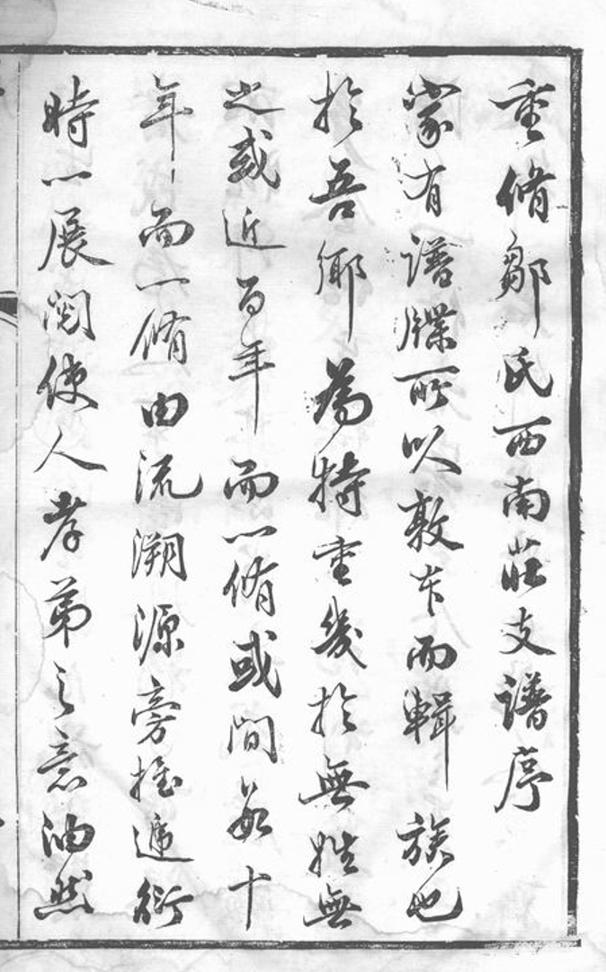 重脩鄒氏西南莊支譜序
家有譜牒所以敦本而輯族也
於吾鄉為特重幾於無姓無
之或近百年而一脩或間數十
年而一脩由流溯源旁推遞衍
時一展閱使人孝弟之意油然